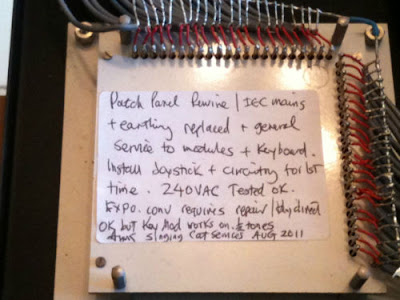 Patch Panel Rewire / IEC mains
+ earthing replaced + general
service to modules + Keyboard.
Install Joystick + circuitry for 1st
time. 240VAC Tested OK.
Expo. conv requires repair /
OK but Key Mod works on ½ tones
Services AUG 2011